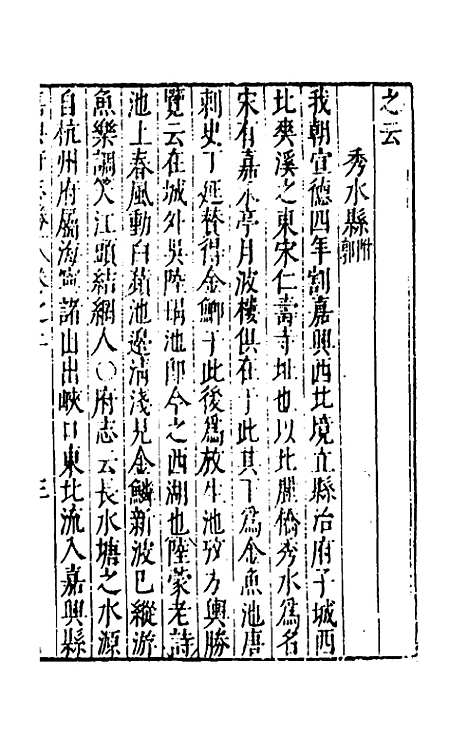 之云
秀水縣附郭
我朝宣德四年割嘉興西北境立縣治府子城西
北爽溪之東宋仁壽寺址也以北麗僑秀水爲名
宋有嘉禾亭月波樓俱在于此其下爲金魚池唐
刺史丁延贊得金鯽于此後爲放生池攷方輿勝
覽云在城外吳陸瑁池卽今之西湖也陸蒙老詩
池上春風動白蘋池邊清淺見金鱗新波已縱游
魚樂調笑江頭結網人〇府志云長水塘之水源
自杭州府屬海寧諸山出峽口東北流入嘉興縣
三